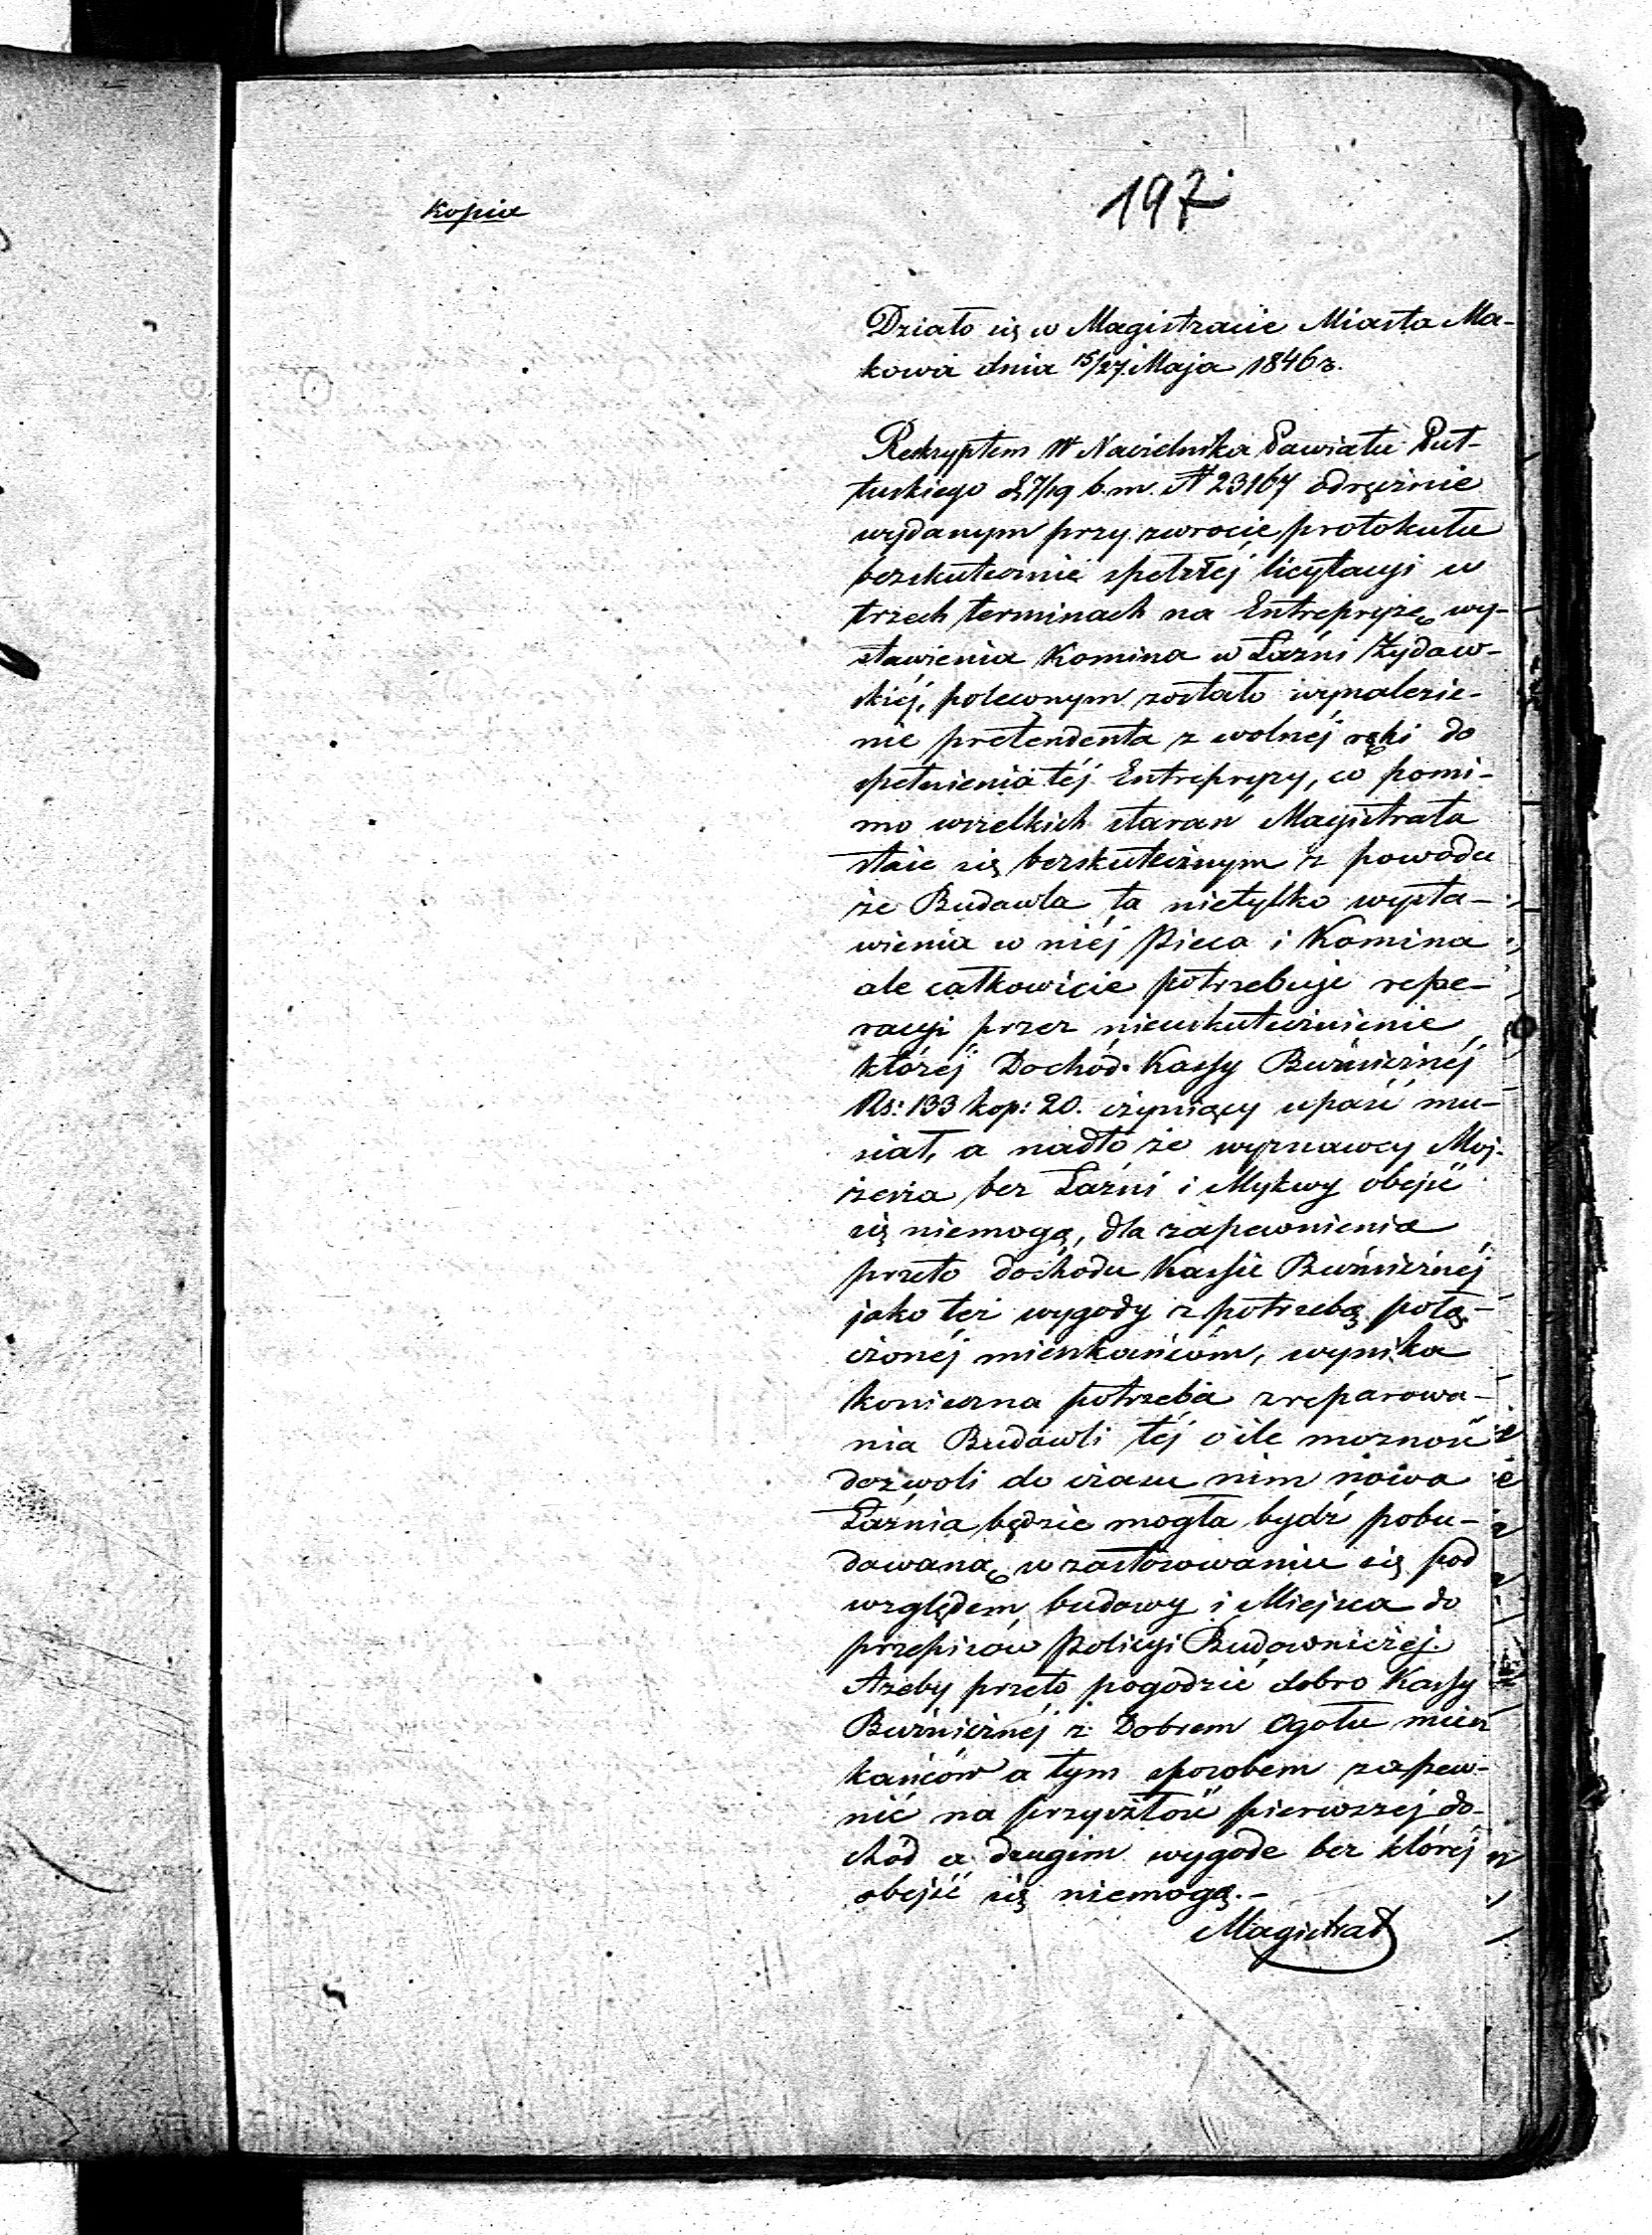 Kopia
197
Działo się w Magistracie Miasta Ma-
kowa dnia 15/27 Maja 1846 r.
Reskryptem W Naczelnika Powiatu Puł-
tuskiego z 7/19 b.m. N 23167 odręcznie
wydanym przy zwrocie protokułu
bezskutecznie spełzłéj licytacyi w
trzech terminach na Entrepryzę wy-
stawienia Komina w Łaźni Żydow-
skiéj, poleconym zostało wynalezie-
nie pretendenta z wolnéj ręki do
spełnienia téj Entrepryzy, co pomi-
mo wszelkich starań Magistratu
staie się bezskutecznym z powodu
że Budowla ta nietylko wysta-
wienia w niéj Pieca i Komina
ale całkowicie potrzebuje repe-
racyi przez nieuskutecznienie
któréj Dochód Kassy Bużnicznéj
Rs: 133 kop: 20. czyniący upaść mu-
siał, a nadto że wyznawcy Moj-
żesza bez Łaźni i Mykwy obejść
się niemogą, dla zapewnienia
przeto dochodu Kassie Bużniczнéj
jako też wygody z potrzebą połą-
czonéj mieszkańcóm, wynika
konieczna potrzeba zreparowa-
nia Budowli téj o ile możność
dozwoli do czasu nim nowa
Łaźnia będzie mogła bydź pobu-
dowaną w zastosowaniu się pod
względem budowy i Miejsca do
przepisów Policyi Budowniczéj.
Ażeby przeto pogodzić dobro Kassy
Bużniczнéj z Dobrem Ogołu miesz
kańców a tym sposobem zapew-
nić na przyszłość pierwszéj do-
chód a drugim wygode bez któréj
obejść się niemogą.-
Magistrat